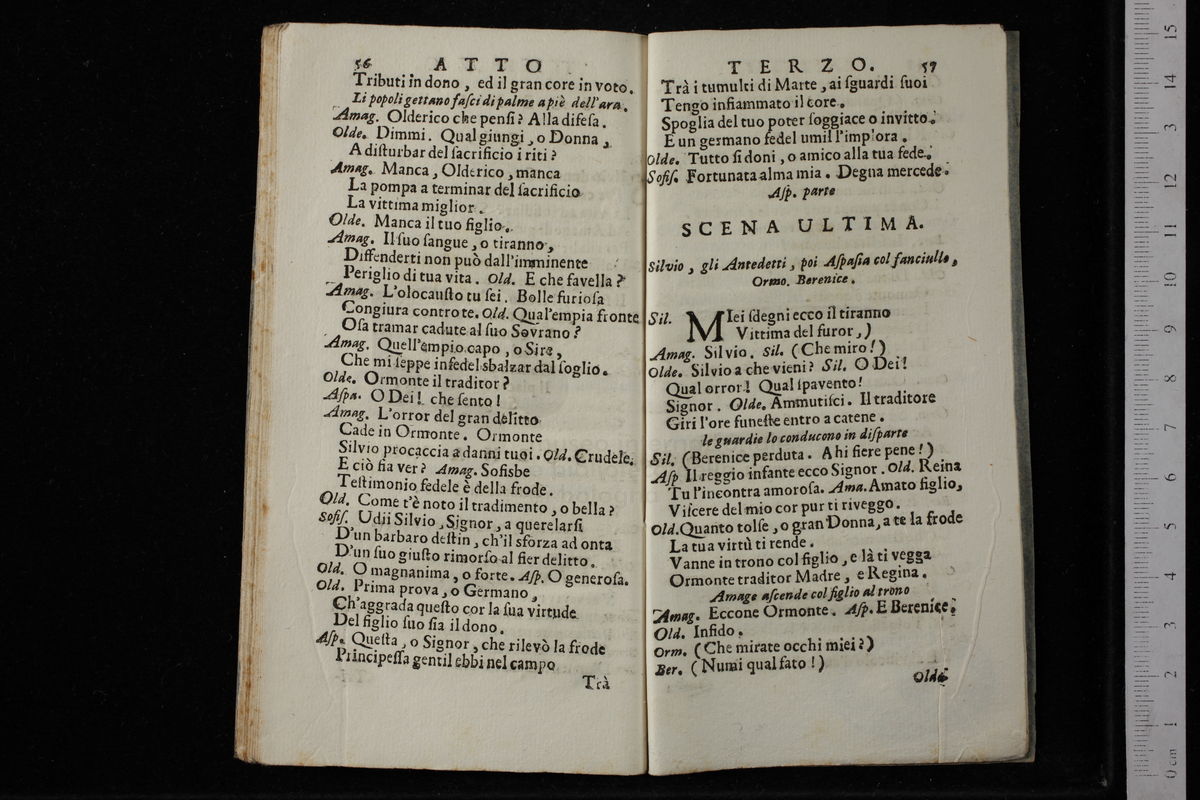 56 ATTO
Tributi in dono, ed il gran core in voto.
Li popoli gettano fasci di palme a piè dell'ara.
Amag. Olderico che pensi? Alla difesa.
Olde. Dimmi. Qual giungi, o Donna,
A disturbar del sacrificio i riti?
Amag. Manca, Olderico, manca
La pompa a terminar del sacrificio
La vittima miglior.
Olde. Manca il tuo figlio.
Amag. Il suo sangue, o tiranno,
Diffenderti non può dall'imminente
Periglio di tua vita. Old. E che favella?
Amag. L'olocausto tu sei. Bolle furiosa
Congiura contro te. Old. Qual'empia fronte
Osa tramar cadute al suo Sovrano?
Amag. Quell'empio capo, o Sire,
Che mi seppe infedel sbalzar dal soglio.
Olde. Ormonte il traditor?
Aspa. O Dei! che sento!
Amag. L'orror del gran delitto
Cade in Ormonte. Ormonte
Silvio procaccia a danni tuoi. Old. Crudele.
E ciò fia ver? Amag. Sofisbe
Testimonio fedele è della frode.
Old. Come t'è noto il tradimento, o bella?
Sofis. Udii Silvio, Signor, a querelarsi
D'un barbaro destin, ch'il sforza ad onta
D'un suo giusto rimorso al fier delitto.
Old. O magnanima, o forte. Asp. O generosa.
Old. Prima prova, o Germano,
Ch'aggrada questo cor la sua virtude
Del figlio suo sia il dono.
Asp. Questa, o Signor, che rilevò la frode
Principessa gentil ebbi nel campo
Trà
TERZO. 57
Trà i tumulti di Marte, ai sguardi suoi
Tengo infiammato il core.
Spoglia del tuo poter soggiace o invitto.
E un germano fedel umil l'implora.
Olde. Tutto si doni, o amico alla tua fede.
Sofis. Fortunata alma mia. Degna mercede.
Asp. parte
SCENA ULTIMA.
Silvio, gli Antedetti, poi Aspasia col fanciullo,
Ormo. Berenice.
Sil. MIei sdegni ecco il tiranno
Vittima del furor,)
Amag. Silvio. Sil. (Che miro!)
Olde. Silvio a che vieni? Sil. O Dei!
Qual orror! Qual spavento!
Signor. Olde. Ammutisci. Il traditore
Giri l'ore funeste entro a catene.
le guardie lo conducono in disparte
Sil. (Berenice perduta. Ahi fiere pene!)
Asp Il reggio infante ecco Signor. Old. Reina
Tu l'incontra amorosa. Ama. Amato figlio,
Viscere del mio cor pur ti riveggo.
Old. Quanto tolse, o gran Donna, a te la frode
La tua virtù ti rende.
Vanne in trono col figlio, e là ti vegga
Ormonte traditor Madre, e Regina.
Amage ascende col figlio al trono
Amag. Eccone Ormonte. Asp. E Berenice.
Old. Infido.
Orm. (Che mirate occhi miei?)
Ber. (Numi qual fato!)
Olde
0 cm 1 2 3 4 5 6 7 8 9 10 11 12 13 14 15